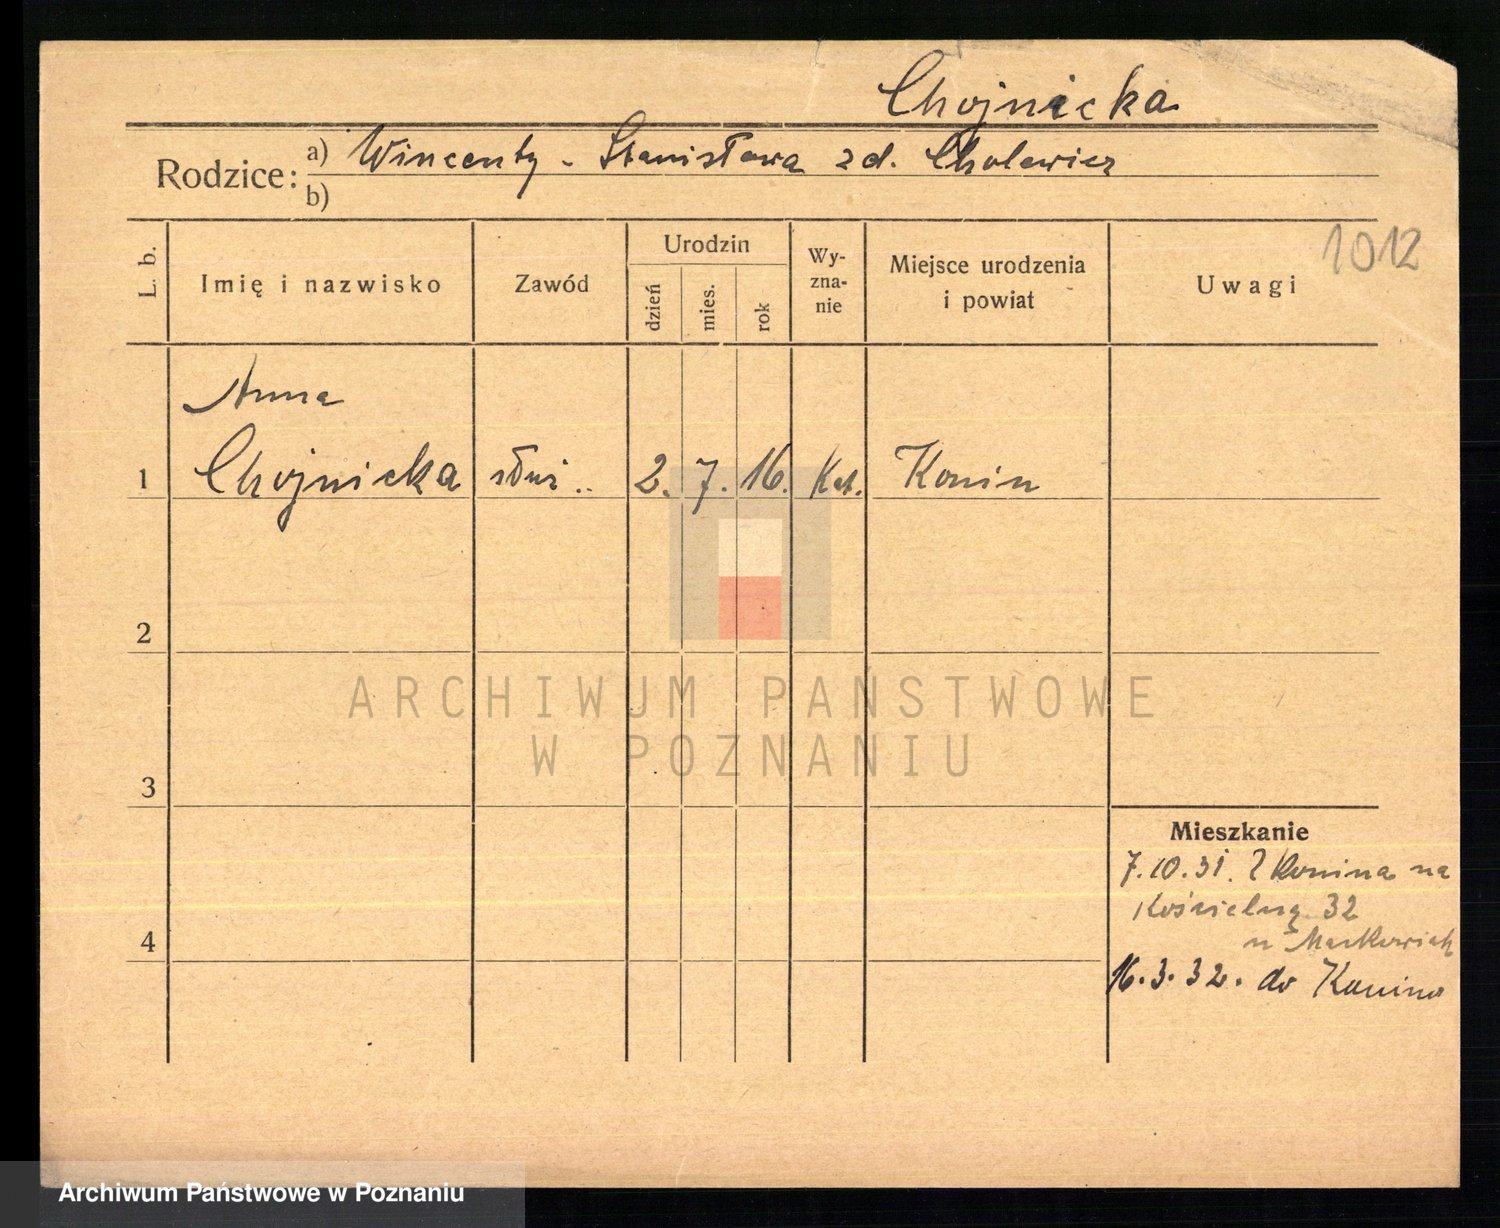 Chojnicka
Rodzice: a) Wincenty - Stanisława zd. Cholewicz
b)
1012
L. b.
Imię i nazwisko
Zawód
Urodzin
dzień
mies.
rok
Wy-
zna-
nie
Miejsce urodzenia
i powiat
Uwagi
Anna
1 Chojnicka służ.. 2. 7. 16. Kat. Konin
2
3
4
Mieszkanie
7.10.31. Z Konina na
Kościelną 32
u
16.3.32. do Konina
ARCHIWUM PAŃSTWOWE
W POZNANIU
Archiwum Państwowe w Poznaniu